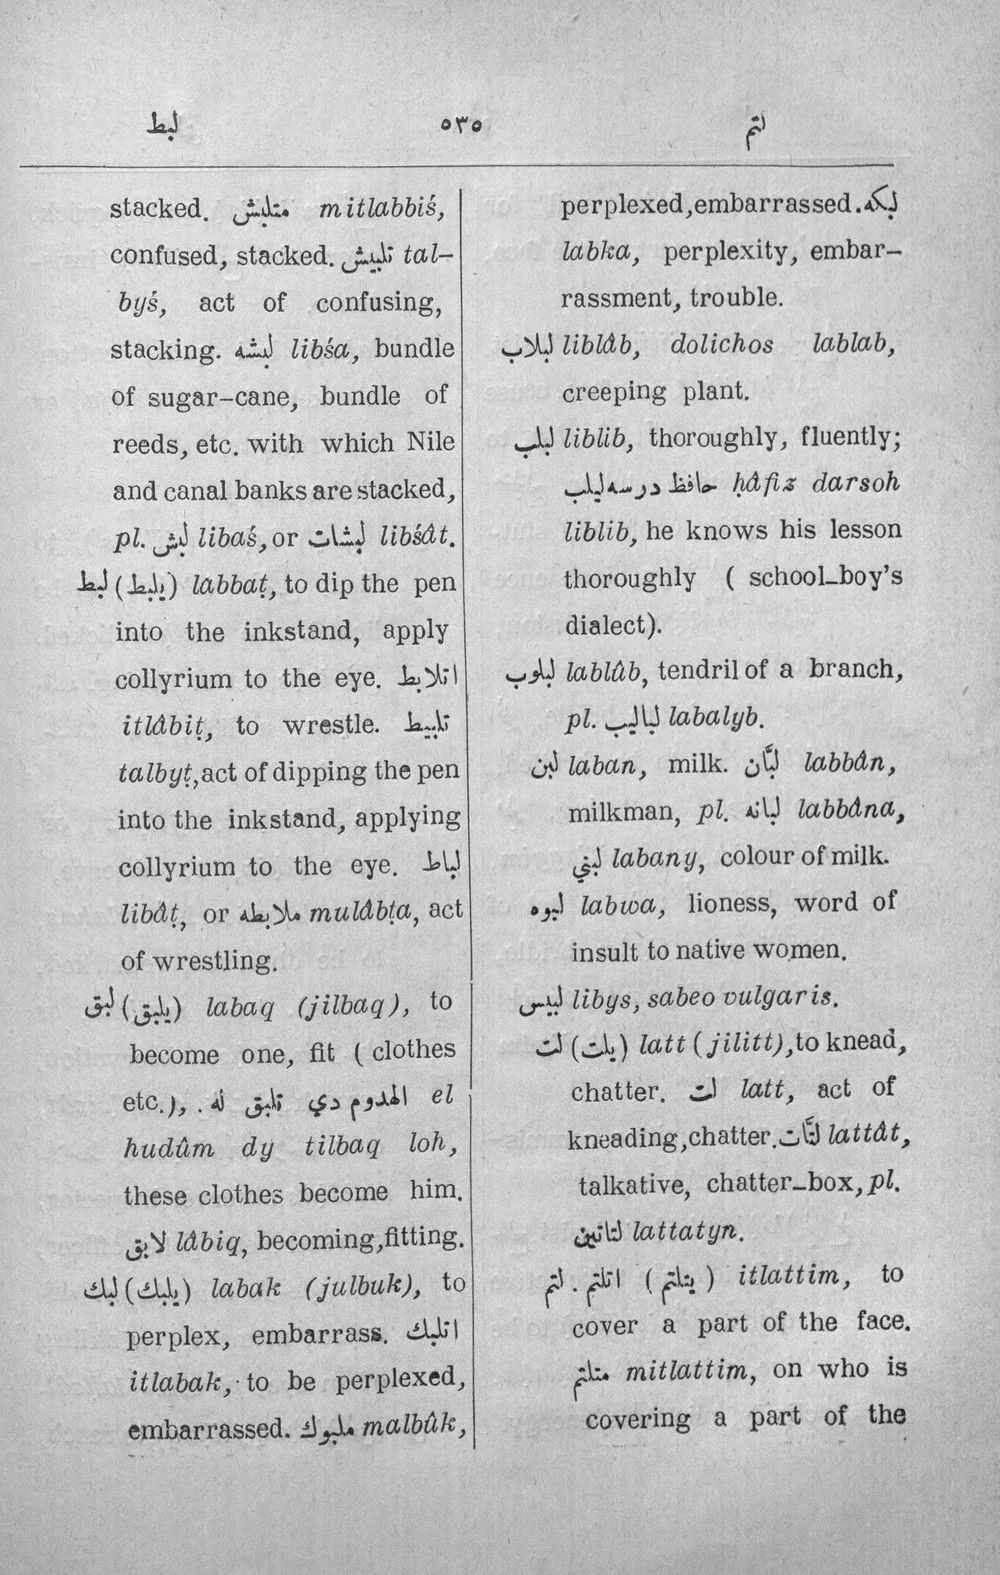 لبط ٥٣٥ لتم
stacked. متلبش mitlabbiś,
confused, stacked. تلبيش tal-
byś, act of confusing,
stacking. لبشه libśa, bundle
of sugar-cane, bundle of
reeds, etc. with which Nile
and canal banks are stacked,
pl. لبش libaś, or لبشات libśât.
لبط (يلبط) labbaṭ, to dip the pen
into the inkstand, apply
collyrium to the eye. اتلابط
itlâbiṭ, to wrestle. تلبيط
talbyṭ, act of dipping the pen
into the inkstand, applying
collyrium to the eye. لباط
libâṭ, or ملابطه mulâbṭa, act
of wrestling.
لبق (يلبق) labaq (jilbaq), to
become one, fit ( clothes
etc.), . الهدوم دي تلبق له el
hudûm dy tilbaq loh,
these clothes become him.
لابق lâbiq, becoming, fitting.
لبك (يلبك) labak (julbuk), to
perplex, embarrass. اتلبك
itlabak, to be perplexed,
embarrassed. ملبوك malbûk,
perplexed, embarrassed. لبكه
labka, perplexity, embar-
rassment, trouble.
لبلاب liblâb, dolichos lablab,
creeping plant.
لبلب liblib, thoroughly, fluently;
حافظ درسه لبلب ḥâfiz darsoh
liblib, he knows his lesson
thoroughly ( school-boy's
dialect).
لبلوب lablûb, tendril of a branch,
pl. لباليب labalyb.
لبن laban, milk. لبَّان labbân,
milkman, pl. لبانه labbâna,
لبني labany, colour of milk.
لبوه labwa, lioness, word of
insult to native women.
لبيس libys, sabeo vulgaris.
لت (يلت) latt (jilitt), to knead,
chatter. لت latt, act of
kneading, chatter. لتَّات lattât,
talkative, chatter-box, pl.
لتاتين lattatyn.
لتم . اتلتم ( يتلتم ) itlattim, to
cover a part of the face.
متلتم mitlattim, on who is
covering a part of the